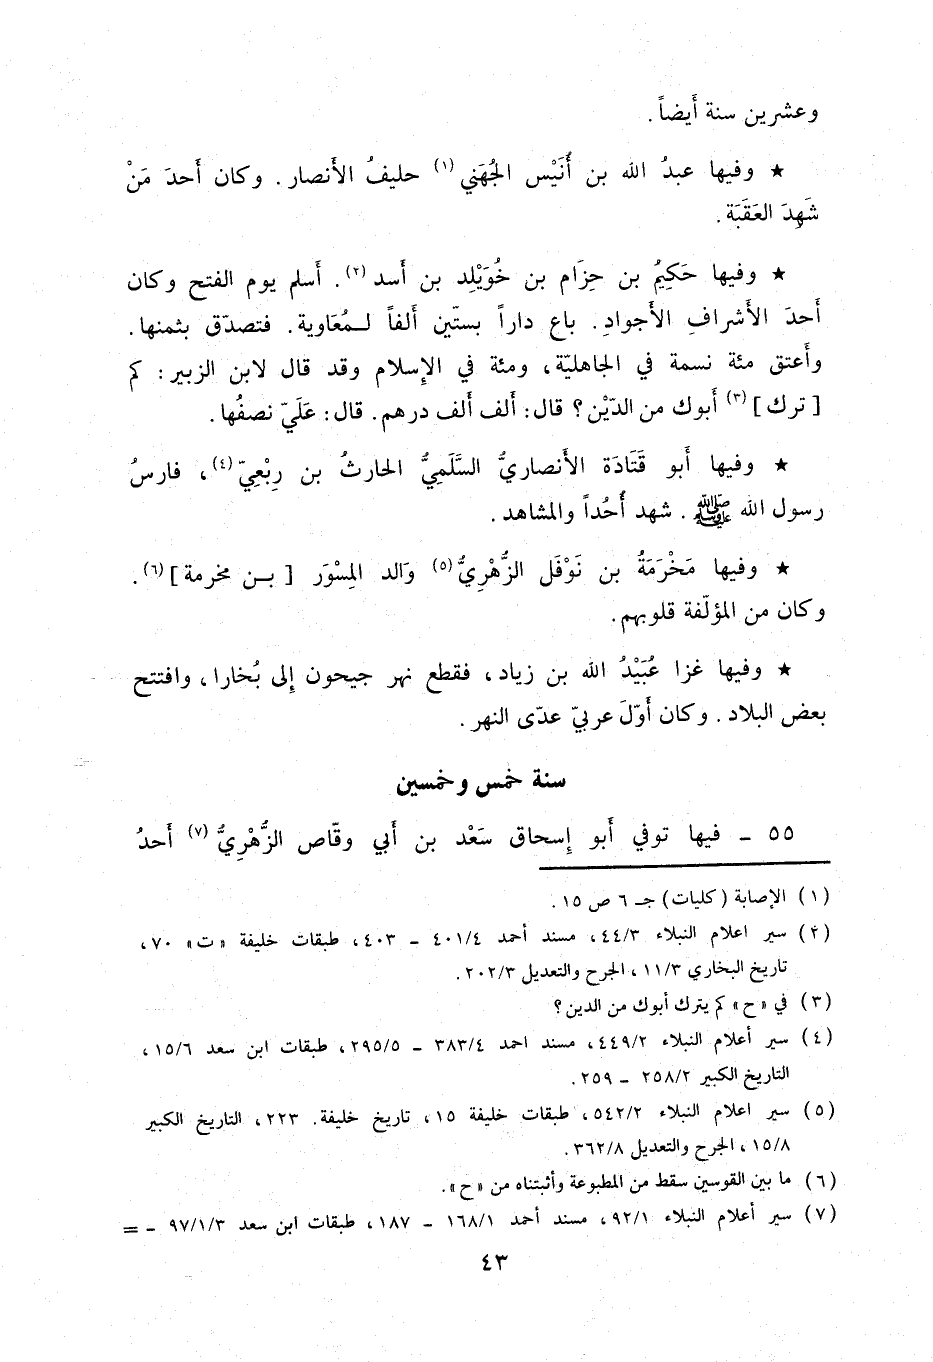 وعشرين سنة أَيضاً .
★ وفيها عبدُ الله بن أُنَيْس الجُهَني (١) حليفُ الأَنصار . وكان أَحدَ مَنْ
شَهِدَ العَقَبَة .
★ وفيها حَكِيمُ بن حِزَام بن خُوَيْلِد بن أَسد (٢) . أَسلم يوم الفتح وكان
أَحدَ الأَشرافِ الأَجوادِ . باع داراً بستّين أَلفاً لـمُعَاوية . فتصدّق بثمنها .
وأَعتق مئة نسمة في الجاهليّة ، ومئة في الإِسلام وقد قال لابن الزبير : كم
[ ترك ] (٣) أَبوك من الدّيْن ؟ قال : أَلف أَلف درهم . قال : عَلَيّ نصفُها .
★ وفيها أَبو قَتَادَة الأَنصاريُّ السَّلَمِيُّ الحارثُ بن رِبْعِيّ (٤) ، فارسُ
رسول الله ﷺ . شهد أُحُداً والمشاهد .
★ وفيها مَخْرَمَةُ بن نَوْفَل الزُّهْرِيُّ (٥) وَالد المِسْوَر [ بـن مخرمة ] (٦) .
وكان من المؤلّفة قلوبهم .
★ وفيها غزا عُبَيْدُ الله بن زياد ، فقطع نهر جيحون إِلى بُخارا ، وافتتح
بعض البلاد . وكان أَوّلَ عربيّ عدّى النهر .
سنة خمس وخمسين
٥٥ ـ فيها توفي أَبو إِسحاق سَعْد بن أَبي وقّاص الزُّهْرِيُّ (٧) أَحدُ
(١) الإصابة ( كليات ) جـ ٦ ص ١٥ .
(٢) سير اعلام النبلاء ٤٤/٣ ، مسند أحمد ٤٠١/٤ ـ ٤٠٣ ، طبقات خليفة « ت » ٧٠ ،
تاريخ البخاري ١١/٣ ، الجرح والتعديل ٢٠٢/٣ .
(٣) في « ح » كم يترك أبوك من الدين ؟
(٤) سير أعلام النبلاء ٤٤٩/٢ ، مسند احمد ٣٨٣/٤ ـ ٢٩٥/٥ ، طبقات ابن سعد ١٥/٦ ،
التاريخ الكبير ٢٥٨/٢ ـ ٢٥٩ .
(٥) سير اعلام النبلاء ٥٤٢/٢ ، طبقات خليفة ١٥ ، تاريخ خليفة . ٢٢٣ ، التاريخ الكبير
١٥/٨ ، الجرح والتعديل ٣٦٢/٨ .
(٦) ما بين القوسين سقط من المطبوعة وأثبتناه من « ح » .
(٧) سير أعلام النبلاء ٩٢/١ ، مسند أحمد ١٦٨/١ ـ ١٨٧ ، طبقات ابن سعد ٩٧/١/٣ ـ =
٤٣